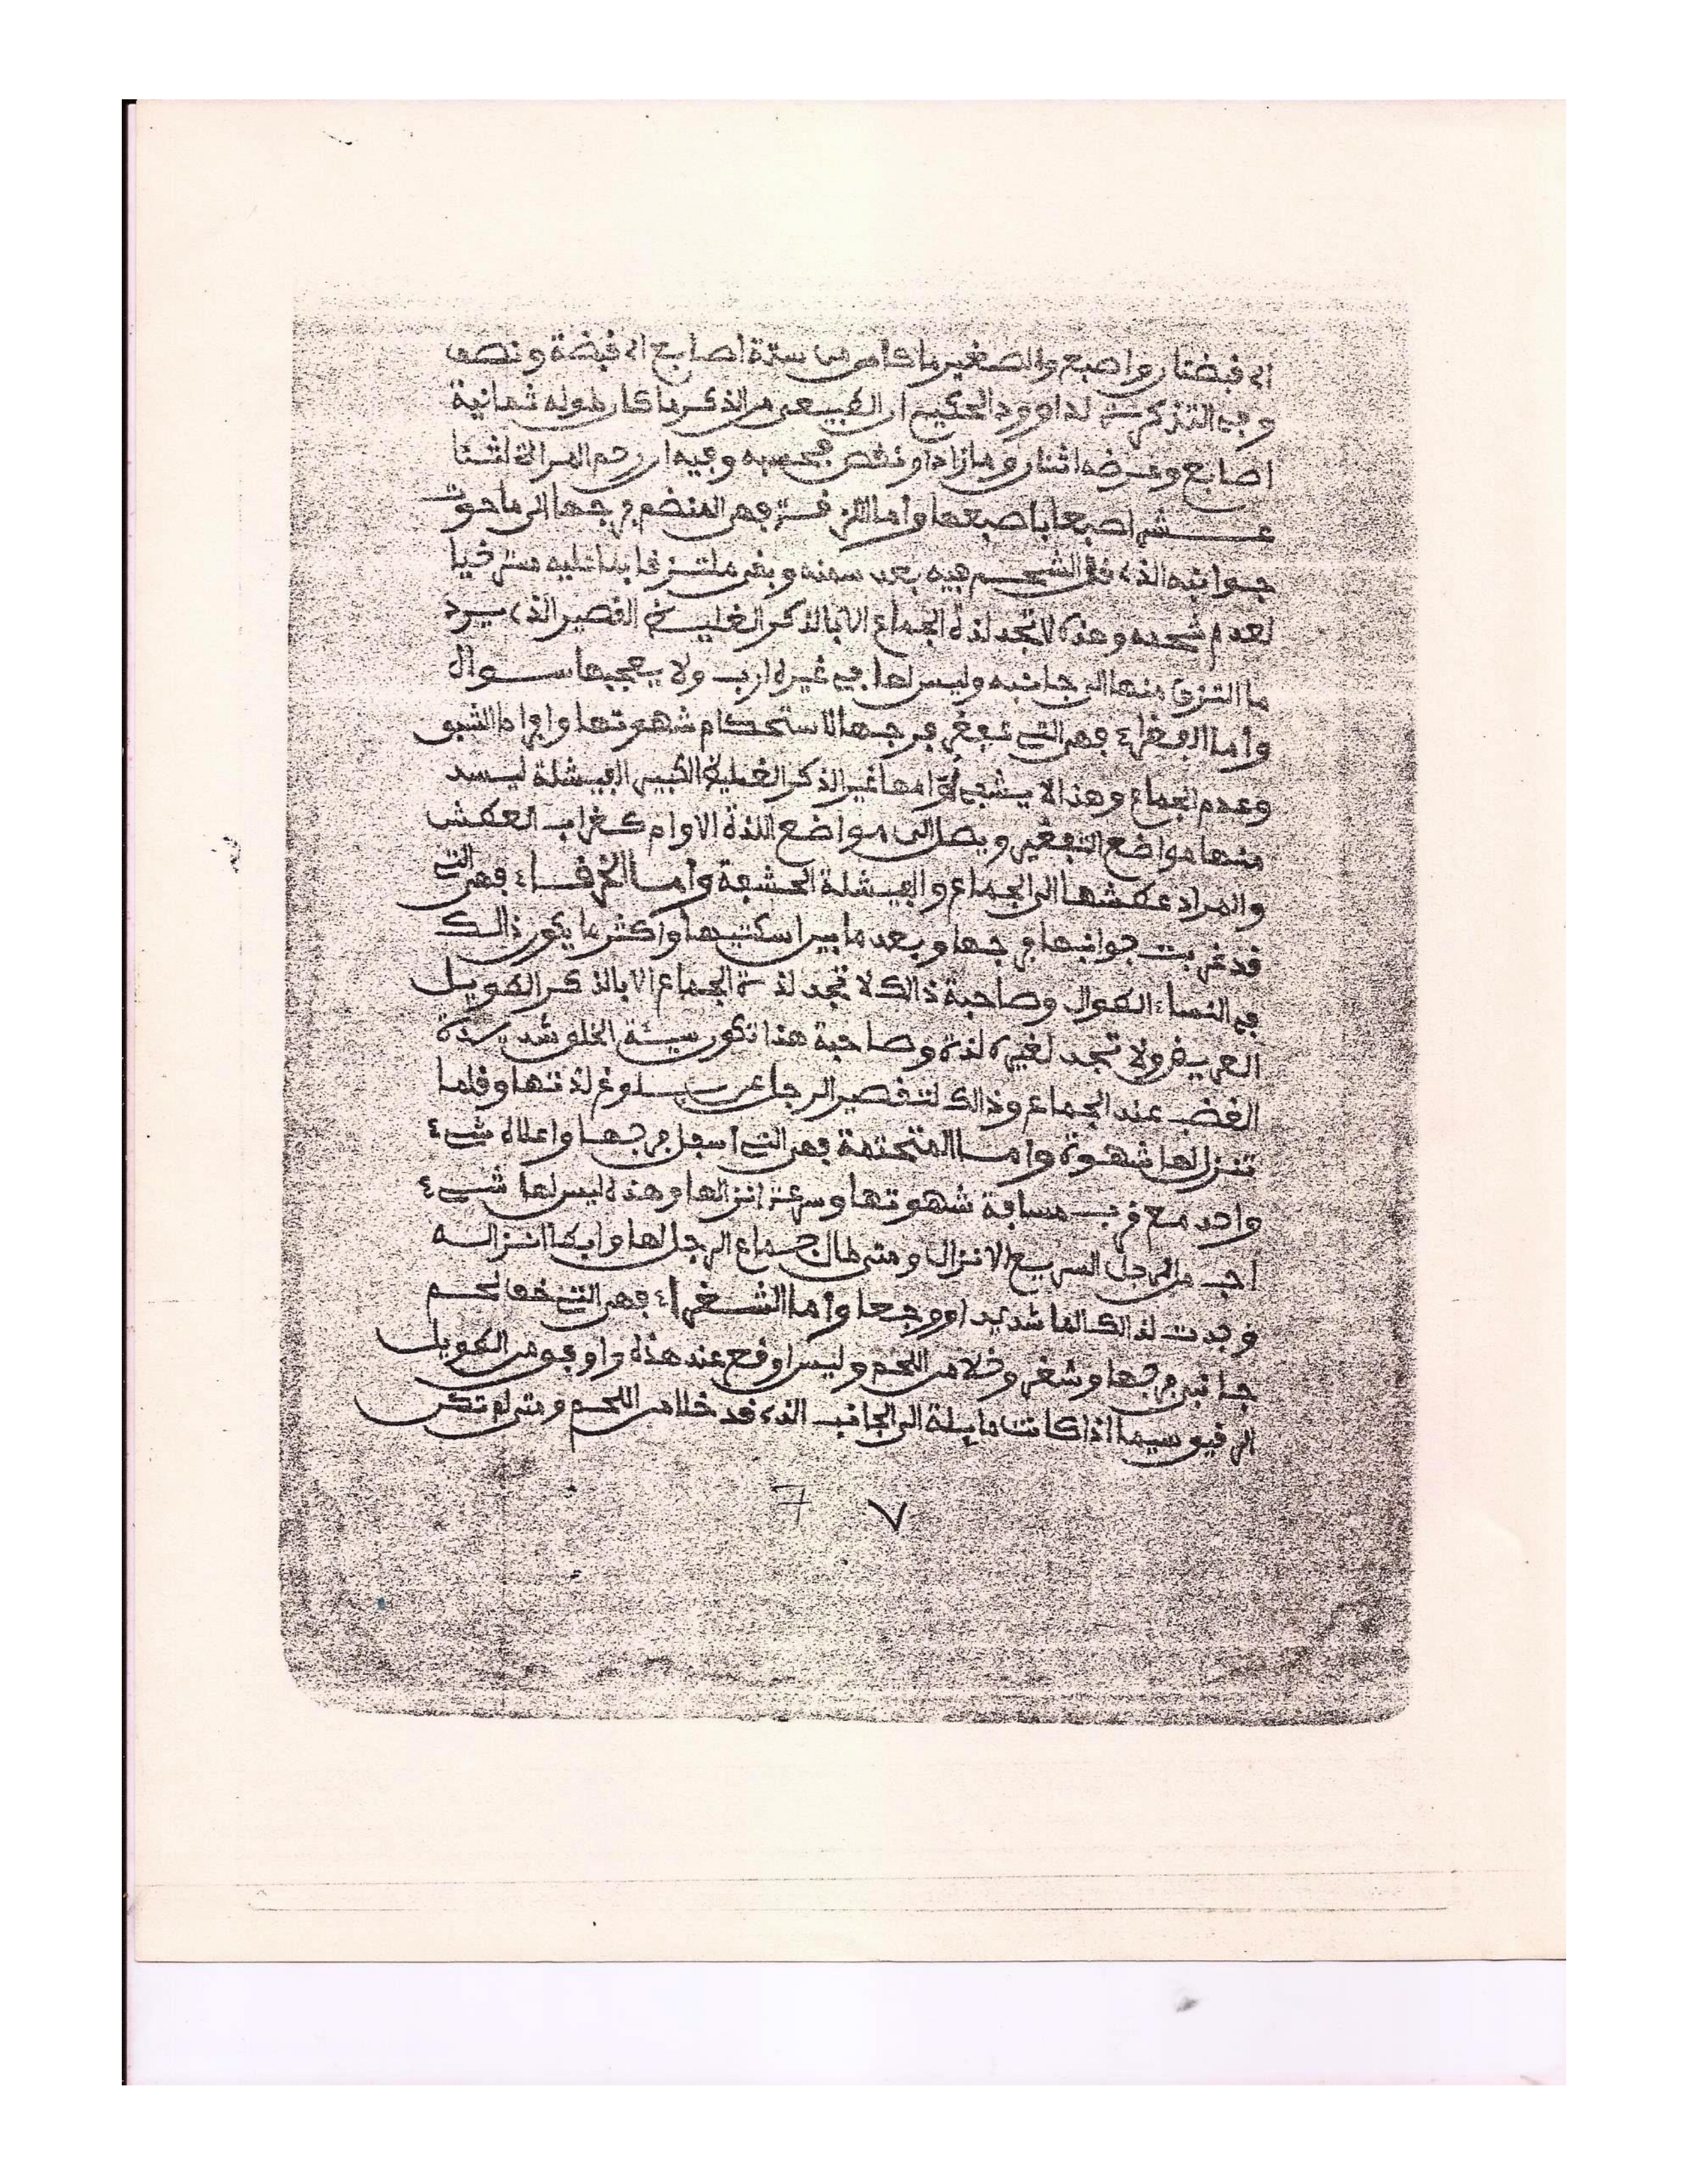 الى قبضتان واصبع والصغير ماكا من ستة اصابع الى قبضة ونصف
وفي التذكرة لداوود الحكيم ان الطبيعى من الذكر ماكان طوله ثمانية
اصابع وعرضه اثنان وما زاد او نقص فبحسبه وفيه ان رحم المراة اثنتا
عشر اصبعا باصبعها وأما اللزقة فهى المنضم فرجها الى ما حوت
جوانبه الذى قل الشحم فيه بعد سمنه وبقى ملتزقا
لعدم شحمه وهذه لا تجد لذة الجماع الا بالذكر الغليظ القصير الذى يرد
ما التزق منها الى جانبه وليس لها في غيره ارب ولا يعجبها سواه
وأما الفغراء فهى التى فرجها لاستحكام شهوتها وافراط الشبق
وعدم الجماع وهذا لا يشفى غير الذكر الغليظ الكبير الفيشلة ليسد
منها مواضع التفغير ويصل الى مواضع اللذة
والمراد عطشها الى الجماع والفيشلة الحشفة وأما الخرقاء فهى التى
قد جوانبها فرجها وبعد ما بين اسكتيها واكثر ما يكون ذالك
في النساء الطوال وصاحبة ذالك لا تجد لذة الجماع الا بالذكر الطويل
العريض ولا تجد لغيره لذة وصاحبة هذا تكون سيئة الخلق شديدة
الغضب عند الجماع وذالك لتقصير الرجل عن بلوغ لذتها وقلما
تنزل لها شهوة وأما المتحتمة فهى التى أسفل فرجها واعلاه شىء
واحد مع قرب مسافة شهوتها وسرعة انزالها وهذه ليس لها شىء
احب من الرجل السريع الانزال ومتى طال جماع الرجل لها وابطا انزاله
وجدت لذالك الما شديدا ووجعا وأما الشغراء فهى التى خف لحم
جانبى فرجها وشغر وخلا من اللحم وليس اوقع عند هذه واوفق من الطويل
الرقيق سيما اذا كانت مايلة الى الجانب الذى قد خلا من اللحم ومتى لم تكن
7 ٧